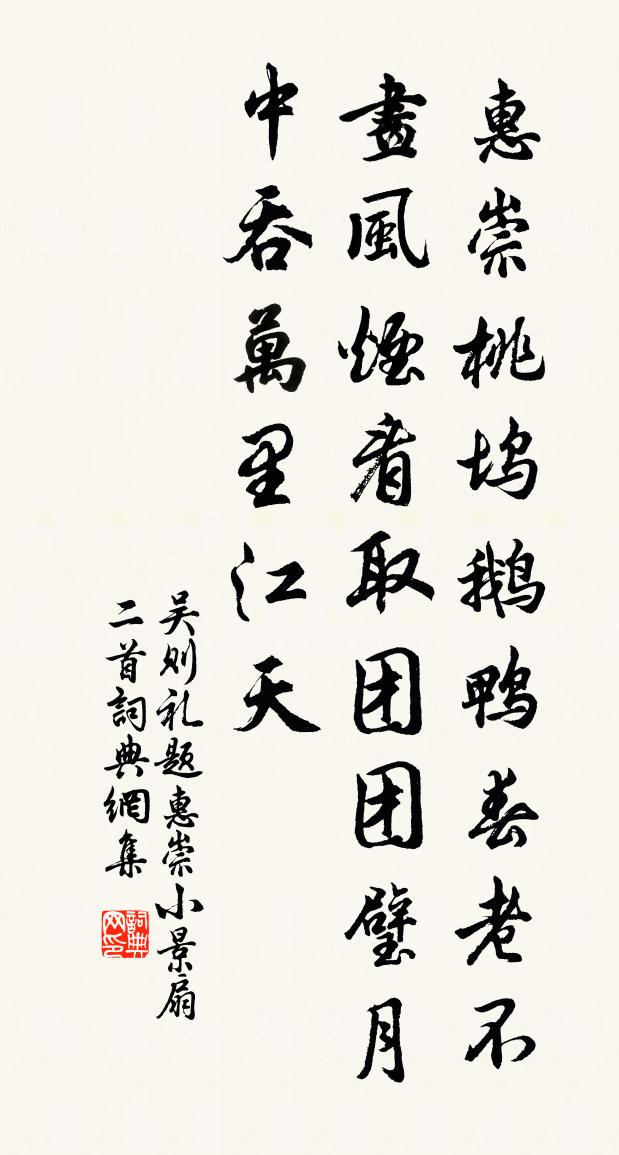 惠崇桃坞鹅鸭春老不
畫風煙看取团团璧月
中吞萬里江天
吴则礼题惠崇小景扇
二首詞典網集
詞典网印